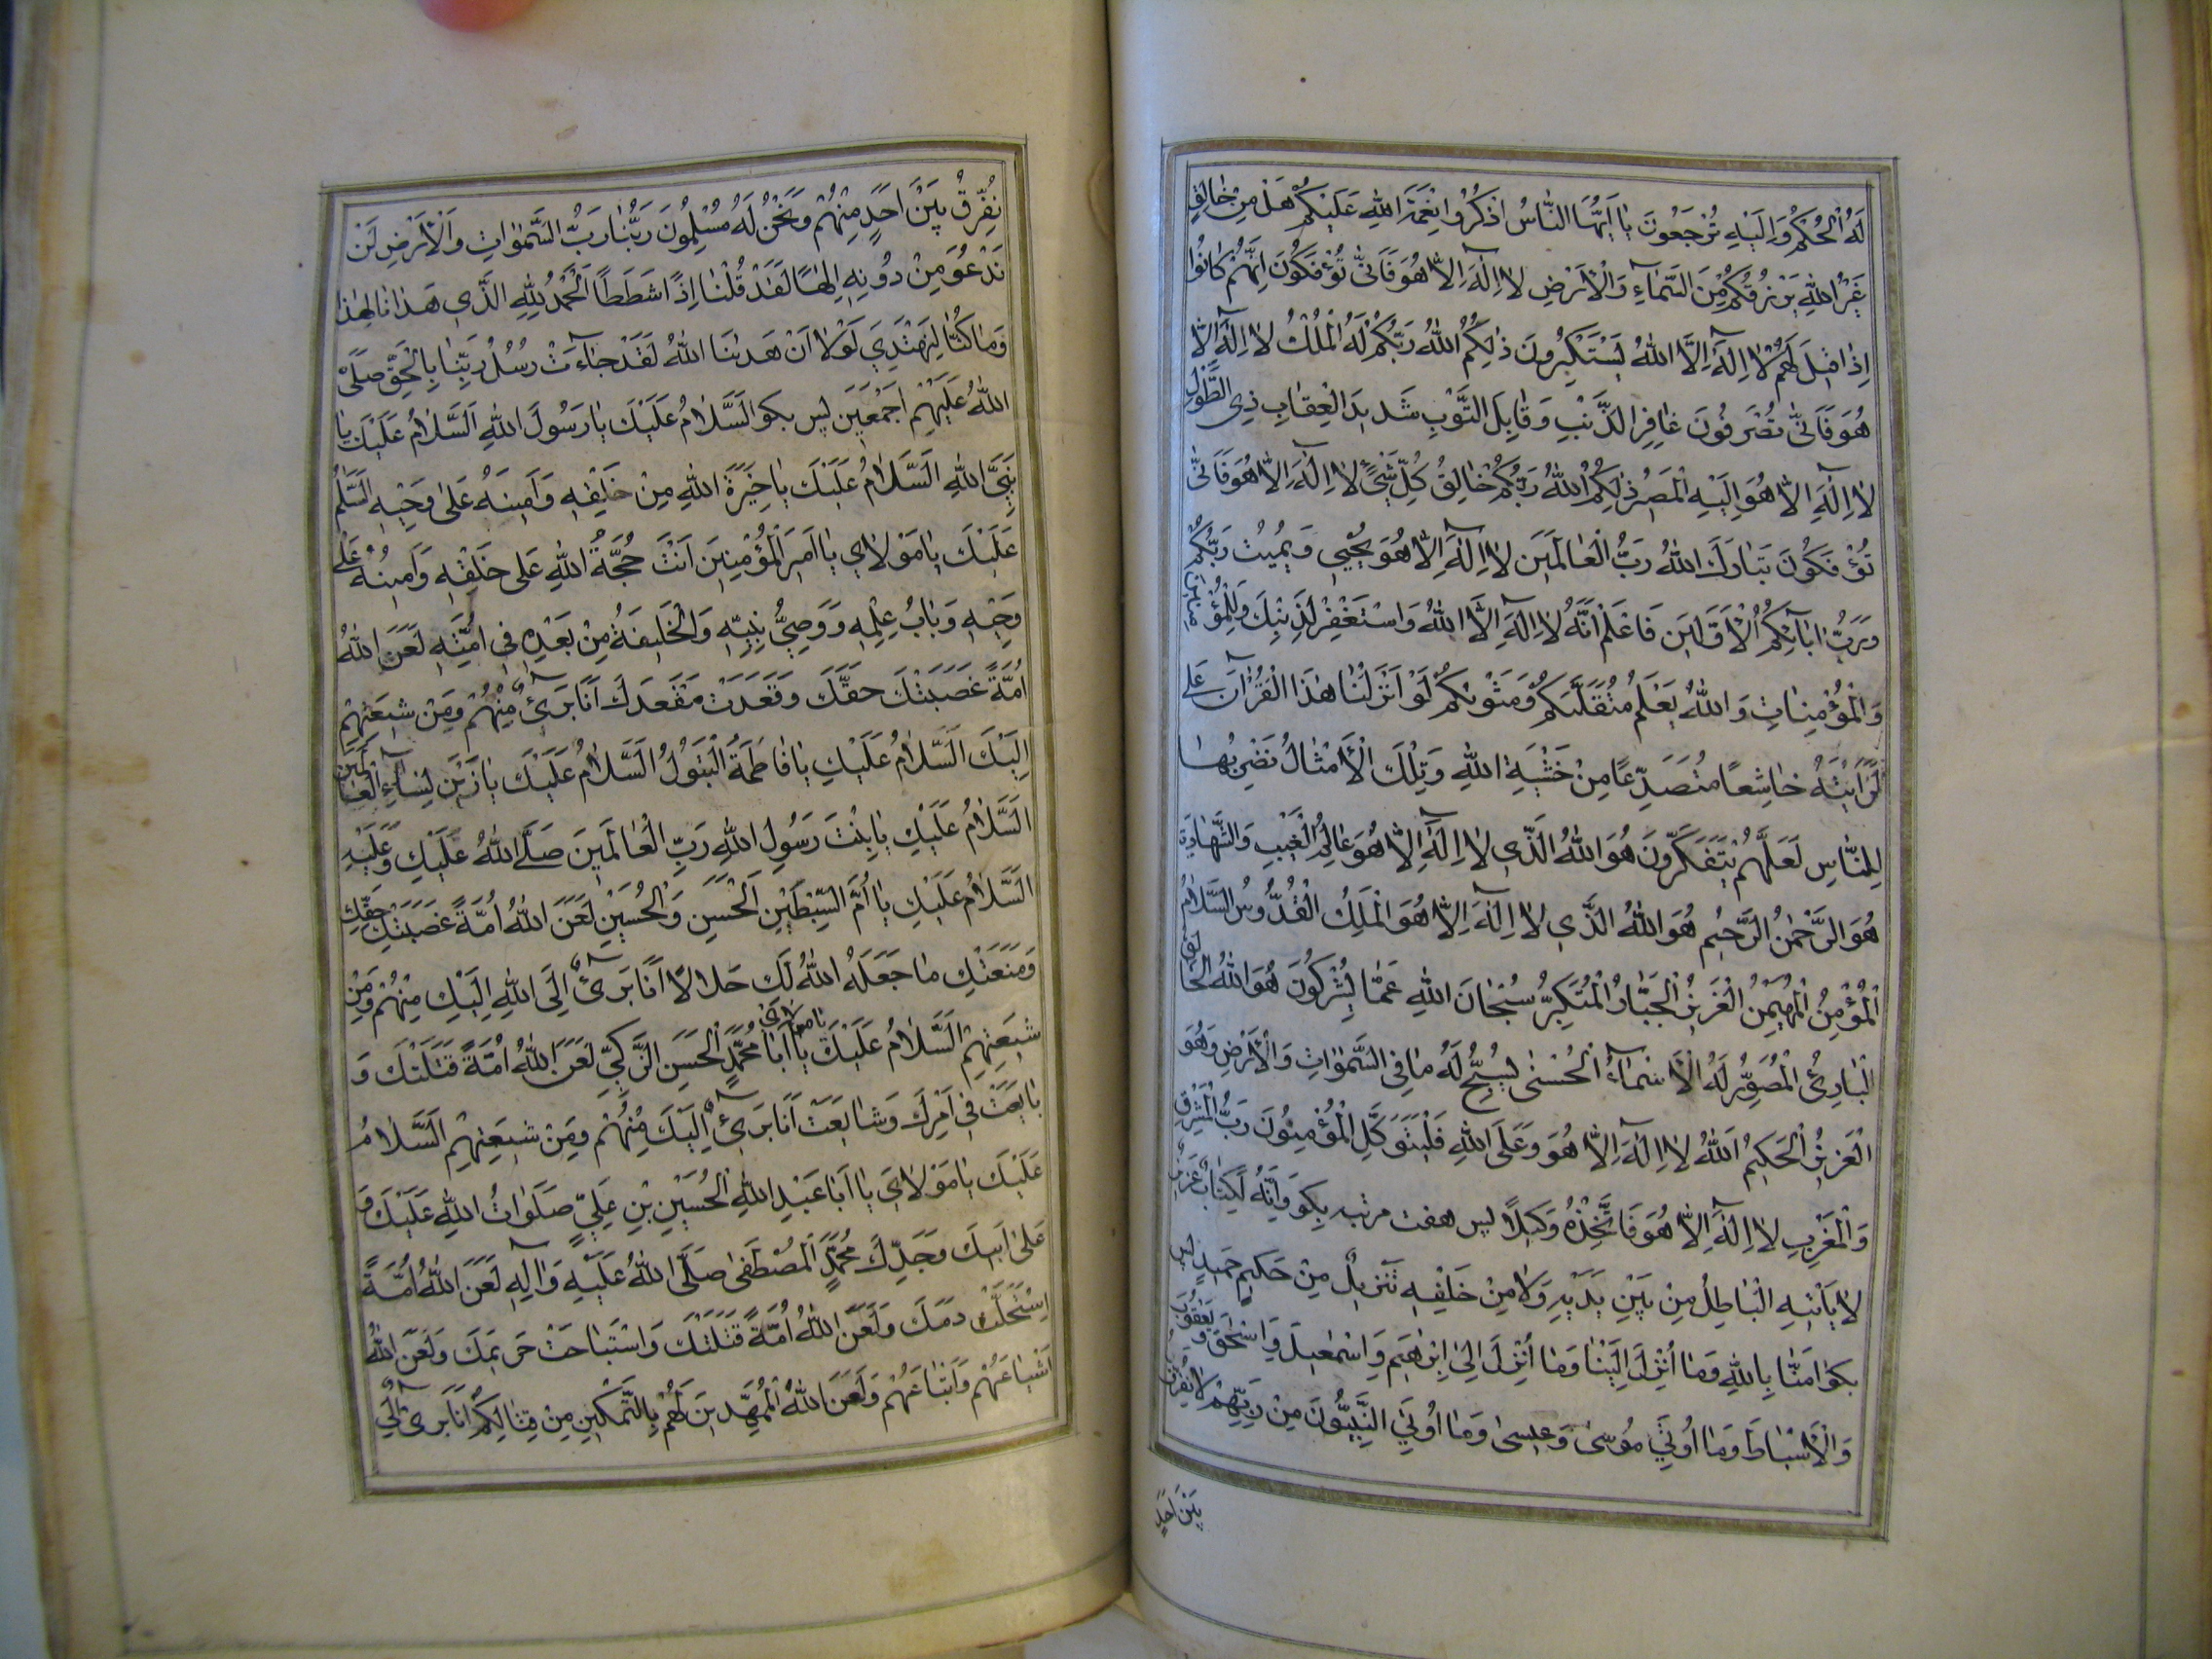 لَهُ الْحُكْمُ وَاِلَيْهِ تُرْجَعُونَ يٰا اَيُّهَا النّٰاسُ اذْكُرُوا نِعْمَةَ اللهِ عَلَيْكُمْ هَلْ مِنْ خٰالِقٍ
غَيْرُ اللهِ يَرْزُقُكُمْ مِنَ السَّمٰآءِ وَالْاَرْضِ لٰا اِلٰهَ اِلّٰا هُوَ فَاَنّٰى تُؤْفَكُونَ اِنَّهُمْ كٰانُوا
اِذٰا قيلَ لَهُمْ لٰا اِلٰهَ اِلَّا اللهُ يَسْتَكْبِرُونَ ذٰلِكُمُ اللهُ رَبُّكُمْ لَهُ الْمُلْكُ لٰا اِلٰهَ اِلّٰا
هُوَ فَاَنّٰى تُصْرَفُونَ غٰافِرِ الذَّنْبِ وَقٰابِلِ التَّوْبِ شَديدِ الْعِقٰابِ ذِي الطَّوْلِ
لٰا اِلٰهَ اِلّٰا هُوَ اِلَيْهِ الْمَصيرُ ذٰلِكُمُ اللهُ رَبُّكُمْ خٰالِقُ كُلِّ شَيْءٍ لٰا اِلٰهَ اِلّٰا هُوَ فَاَنّٰى
تُؤْفَكُونَ تَبٰارَكَ اللهُ رَبُّ الْعٰالَمينَ لٰا اِلٰهَ اِلّٰا هُوَ يُحْيي وَيُميتُ رَبُّكُمْ
وَرَبُّ اٰبٰآئِكُمُ الْاَوَّلينَ فَاعْلَمْ اَنَّهُ لٰا اِلٰهَ اِلَّا اللهُ وَاسْتَغْفِرْ لِذَنْبِكَ وَلِلْمُؤْمِنينَ
وَالْمُؤْمِنٰاتِ وَاللهُ يَعْلَمُ مُتَقَلَّبَكُمْ وَمَثْوٰيكُمْ لَوْ اَنْزَلْنٰا هٰذَا الْقُرْاٰنَ عَلى
لَرَاَيْتَهُ خٰاشِعاً مُتَصَدِّعاً مِنْ خَشْيَةِ اللهِ وَتِلْكَ الْاَمْثٰالُ نَضْرِبُهٰا
لِلنّٰاسِ لَعَلَّهُمْ يَتَفَكَّرُونَ هُوَ اللهُ الَّذي لٰا اِلٰهَ اِلّٰا هُوَ عٰالِمُ الْغَيْبِ وَالشَّهٰادَةِ
هُوَ الرَّحْمٰنُ الرَّحيمُ هُوَ اللهُ الَّذي لٰا اِلٰهَ اِلّٰا هُوَ الْمَلِكُ الْقُدُّوسُ السَّلٰامُ
الْمُؤْمِنُ الْمُهَيْمِنُ الْعَزيزُ الْجَبّٰارُ الْمُتَكَبِّرُ سُبْحٰانَ اللهِ عَمّٰا يُشْرِكُونَ هُوَ اللهُ الْخٰالِقُ
الْبٰارِئُ الْمُصَوِّرُ لَهُ الْاَسْمٰآءُ الْحُسْنٰى يُسَبِّحُ لَهُ مٰا فِي السَّمٰوٰاتِ وَالْاَرْضِ وَهُوَ
الْعَزيزُ الْحَكيمُ اَللهُ لٰا اِلٰهَ اِلّٰا هُوَ وَعَلَى اللهِ فَلْيَتَوَكَّلِ الْمُؤْمِنُونَ رَبُّ الْمَشْرِقِ
وَالْمَغْرِبِ لٰا اِلٰهَ اِلّٰا هُوَ فَاتَّخِذْهُ وَكيلاً پس هفت مرتبه بگو وَاِنَّهُ لَكِتٰابٌ عَزيزٌ
لٰا يَاْتيهِ الْبٰاطِلُ مِنْ بَيْنِ يَدَيْهِ وَلٰا مِنْ خَلْفِهِ تَنْزيلٌ مِنْ حَكيمٍ حَميدٍ پس
بگو اٰمَنّٰا بِاللهِ وَمٰا اُنْزِلَ اِلَيْنٰا وَمٰا اُنْزِلَ اِلىٰ اِبْرٰهيمَ وَاِسْمٰعيلَ وَاِسْحٰقَ وَيَعْقُوبَ
وَالْاَسْبٰاطِ وَمٰا اُوتِيَ مُوسىٰ وَعيسىٰ وَمٰا اُوتِيَ النَّبِيُّونَ مِنْ رَبِّهِمْ لٰا نُفَرِّقُ
بَيْنَ اَحَدٍ
نُفَرِّقُ بَيْنَ اَحَدٍ مِنْهُمْ وَنَحْنُ لَهُ مُسْلِمُونَ رَبُّنٰا رَبُّ السَّمٰوٰاتِ وَالْاَرْضِ لَنْ
نَدْعُوَ مِنْ دُونِهِ اِلٰهاً لَقَدْ قُلْنٰا اِذاً شَطَطاً اَلْحَمْدُ لِلّٰهِ الَّذي هَدٰانٰا لِهٰذٰا
وَمٰا كُنّٰا لِنَهْتَدِيَ لَوْلٰا اَنْ هَدٰينَا اللهُ لَقَدْ جٰآءَتْ رُسُلُ رَبِّنٰا بِالْحَقِّ صَلَّى
اللهُ عَلَيْهِمْ اَجْمَعينَ پس بگو اَلسَّلٰامُ عَلَيْكَ يٰا رَسُولَ اللهِ اَلسَّلٰامُ عَلَيْكَ يٰا
نَبِيَّ اللهِ اَلسَّلٰامُ عَلَيْكَ يٰا خِيَرَةَ اللهِ مِنْ خَلْقِهِ وَاَمينَهُ عَلىٰ وَحْيِهِ اَلسَّلٰامُ
عَلَيْكَ يٰا مَوْلٰايَ يٰا اَميرَ الْمُؤْمِنينَ اَنْتَ حُجَّةُ اللهِ عَلى خَلْقِهِ وَاَمينُهُ عَلى
وَحْيِهِ وَبٰابُ عِلْمِهِ وَوَصِيُّ نَبِيِّهِ وَالْخَليفَةُ مِنْ بَعْدِهِ في اُمَّتِهِ لَعَنَ اللهُ
اُمَّةً غَصَبَتْكَ حَقَّكَ وَقَعَدَتْ مَقْعَدَكَ اَنَا بَريٓءٌ مِنْهُمْ وَمِنْ شيعَتِهِمْ
اِلَيْكَ اَلسَّلٰامُ عَلَيْكِ يٰا فٰاطِمَةُ الْبَتُولُ اَلسَّلٰامُ عَلَيْكِ يٰا زَيْنَ نِسٰآءِ الْعٰالَمينَ
اَلسَّلٰامُ عَلَيْكِ يٰا بِنْتَ رَسُولِ اللهِ رَبِّ الْعٰالَمينَ صَلَّى اللهُ عَلَيْكِ وَعَلَيْهِ
اَلسَّلٰامُ عَلَيْكِ يٰا اُمَّ السِّبْطَيْنِ الْحَسَنِ وَالْحُسَيْنِ لَعَنَ اللهُ اُمَّةً غَصَبَتْكِ حَقَّكِ
وَمَنَعَتْكِ مٰا جَعَلَهُ اللهُ لَكِ حَلٰالاً اَنَا بَريٓءٌ اِلَى اللهِ اِلَيْكِ مِنْهُمْ وَمِنْ
شيعَتِهِمْ اَلسَّلٰامُ عَلَيْكَ يٰا مولٰاي يٰا اَبٰا مُحَمَّدٍ الْحَسَنِ الزَّكِيِّ لَعَنَ اللهُ اُمَّةً قَتَلَتْكَ وَ
بٰايَعَتْ في اَمْرِكَ وَشٰايَعَتْ اَنَا بَريٓءٌ اِلَيْكَ مِنْهُمْ وَمِنْ شيعَتِهِمْ اَلسَّلٰامُ
عَلَيْكَ يٰا مَوْلٰايَ يٰا اَبٰا عَبْدِ اللهِ الْحُسَيْنِ بْنِ عَلِيٍّ صَلَوٰاتُ اللهِ عَلَيْكَ وَ
عَلىٰ اَبيكَ وَجَدِّكَ مُحَمَّدٍ الْمُصْطَفىٰ صَلَّى اللهُ عَلَيْهِ وَاٰلِهِ لَعَنَ اللهُ اُمَّةً
اِسْتَحَلَّتْ دَمَكَ وَلَعَنَ اللهُ اُمَّةً قَتَلَتْكَ وَاسْتَبٰاحَتْ حَريمَكَ وَلَعَنَ اللهُ
اَشْيٰاعَهُمْ وَاَتْبٰاعَهُمْ وَلَعَنَ اللهُ الْمُمَهِّدينَ لَهُمْ بِالتَّمْكينِ مِنْ قِتٰالِكُمْ اَنَا بَريٓءٌ اِلَى